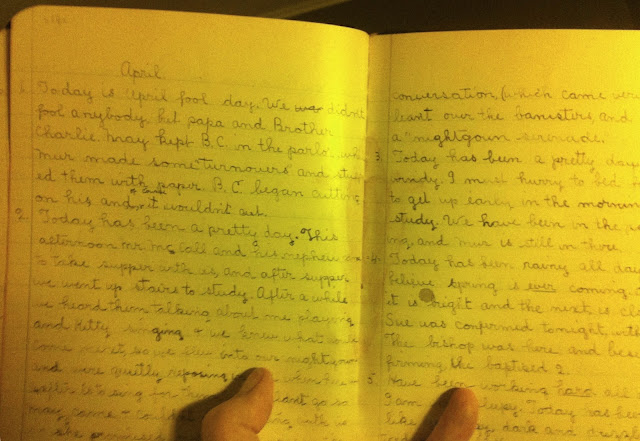 April
1. Today is April fool day. We didn't
fool anybody but papa and Brother
Charlie. May kept B.C. in the parlor while
Mur made some turnovers and stuff
ed them with paper. B.C. began cutting
on his and it wouldn't cut.
2. Today has been a pretty day. This
afternoon Mr. McCall and his nephew
to take supper with us, and after supper
we went up stairs to study. After a while
we heard them talking about me playing
and Kitty singing & we knew what would
come next, so we flew into our nightgowns
and were quietly reposing when
after us to sing for them go so
May came
she promised
conversation, (which came very
leant over the banisters, and
a "nightgown serenade."
3. Today has been a pretty day
windy. I must hurry to bed
to get up early in the morning
study. We have been in the
ing, and Mur is still in there.
4. Today has been rainy all day
believe spring is ever coming.
it is bright and the next is
Sue was confirmed tonight, with
The bishop was here and
firming, he baptised 2.
5. Have been working hard all
I am Today has been
like dark and